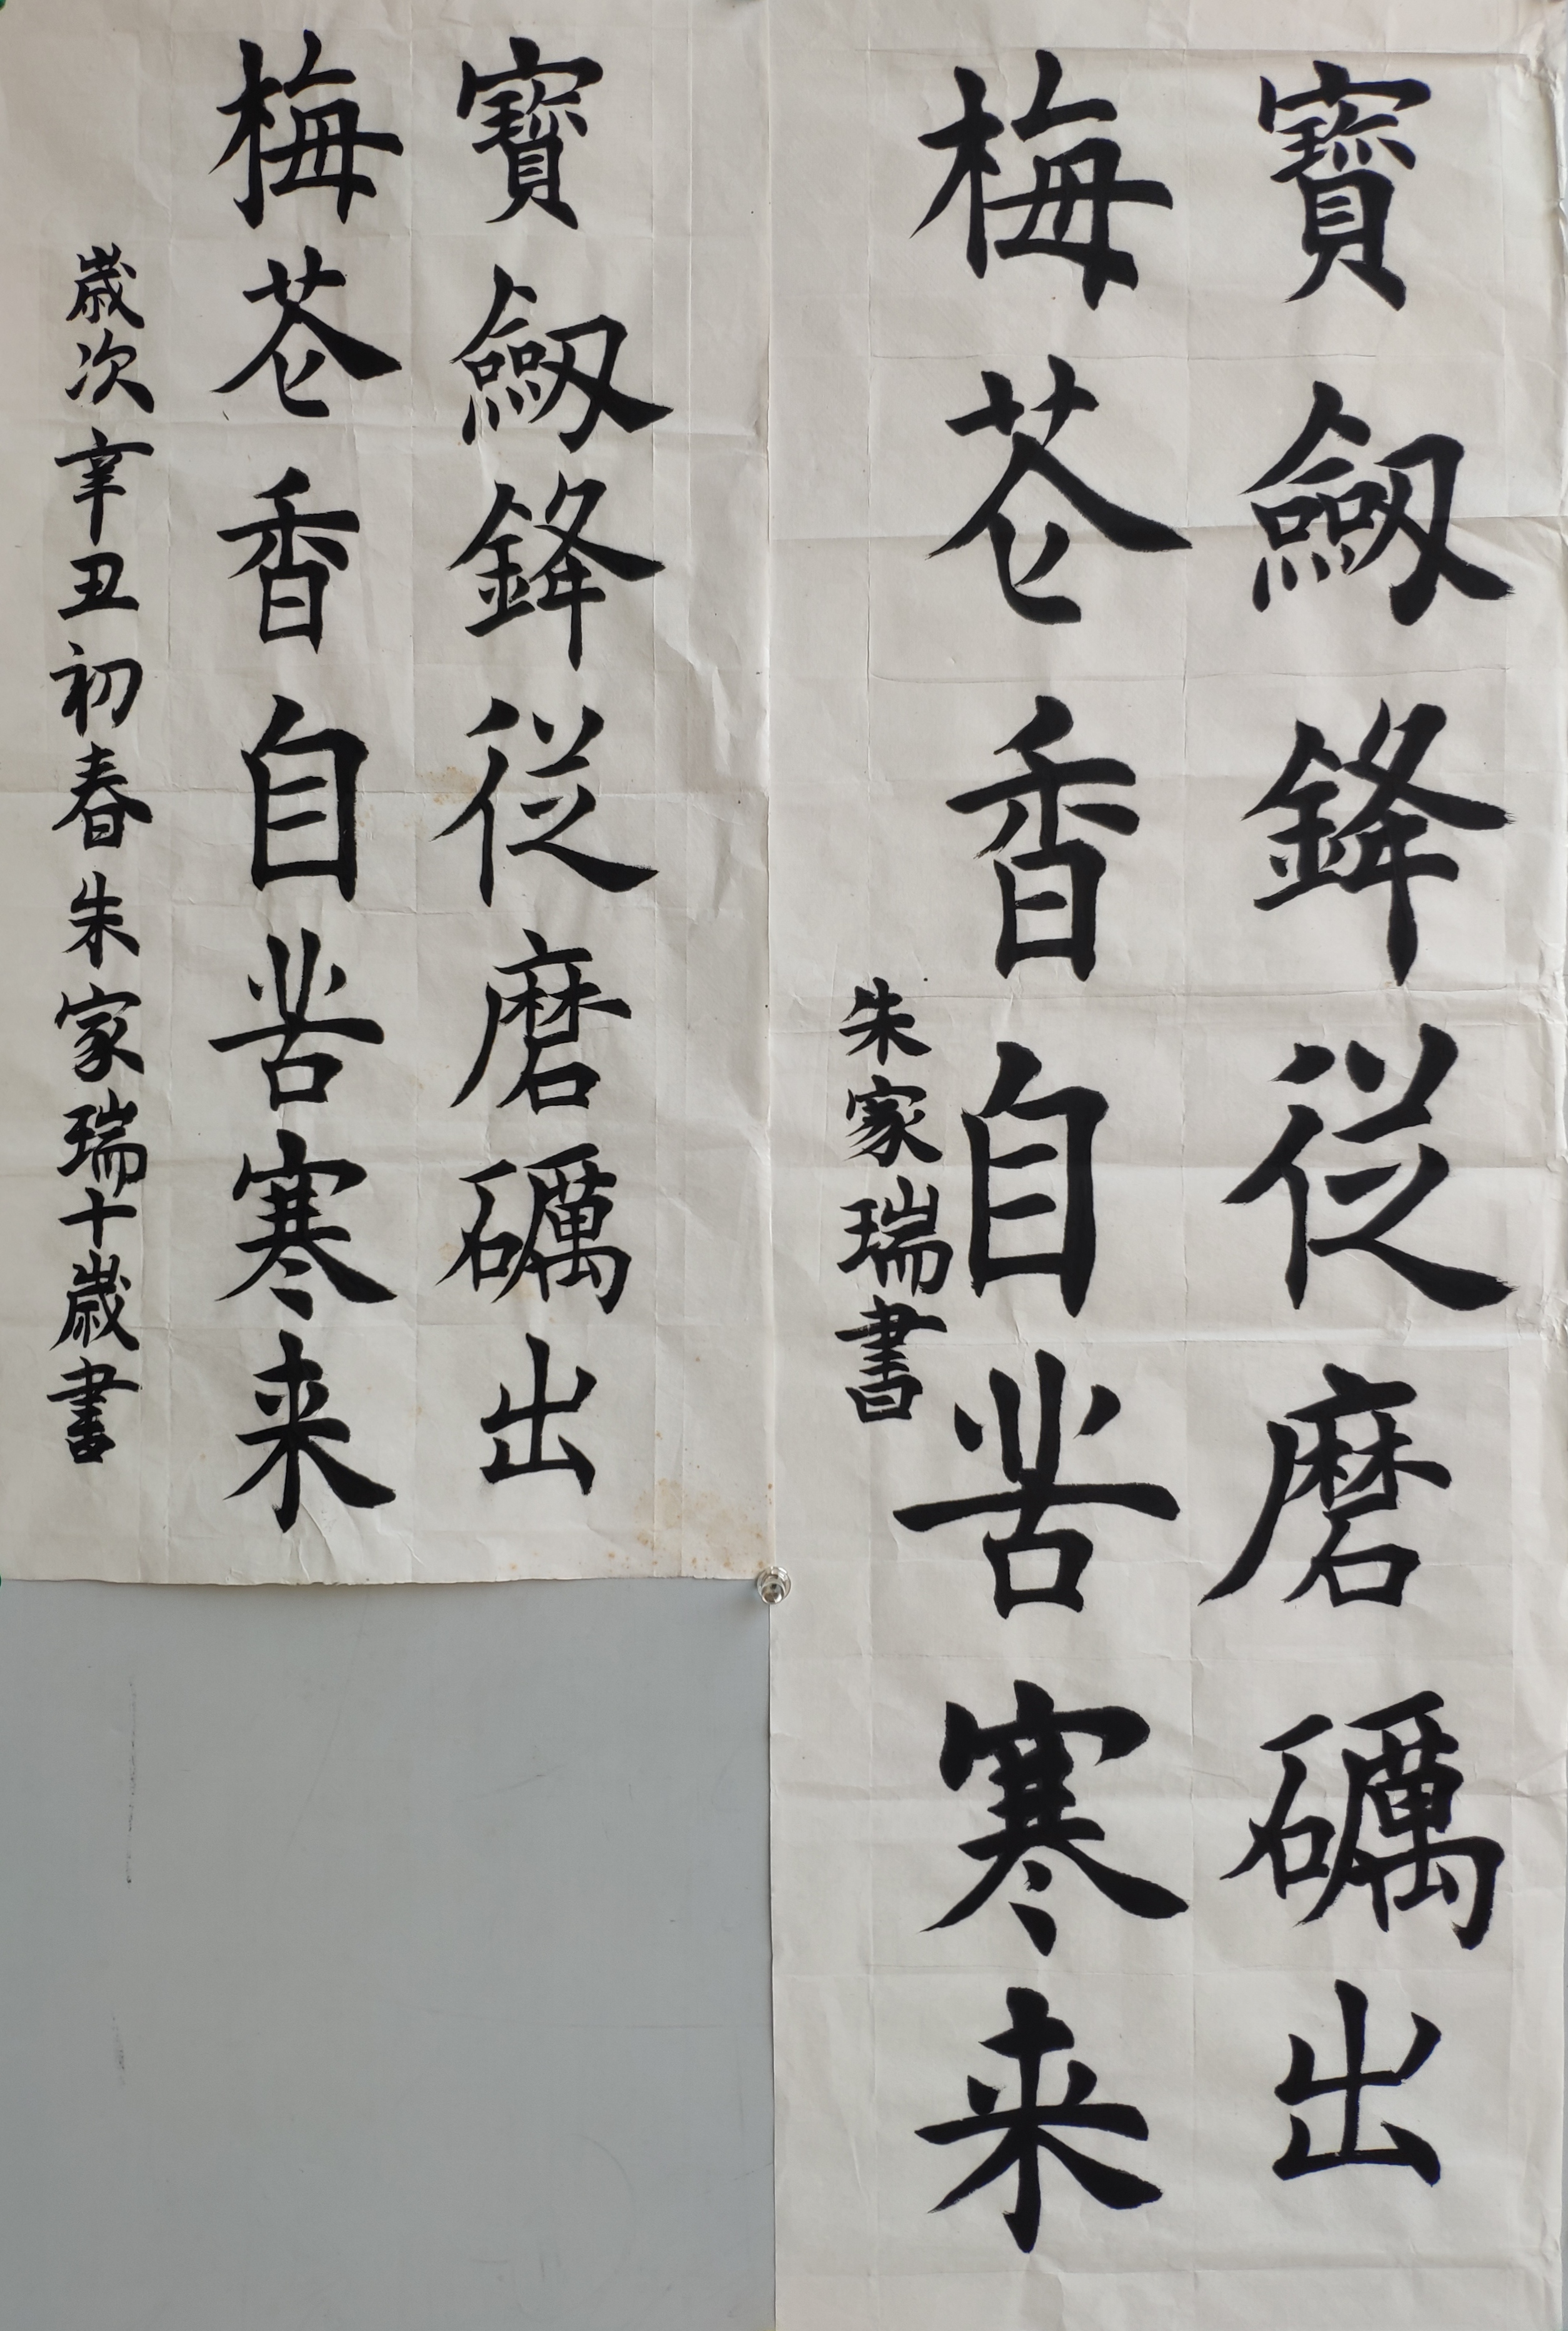 寶劔鋒從磨礪出
梅花香自苦寒来
朱家瑞書
寶劔鋒從磨礪出
梅花香自苦寒来
歳次辛丑初春朱家瑞十歳書